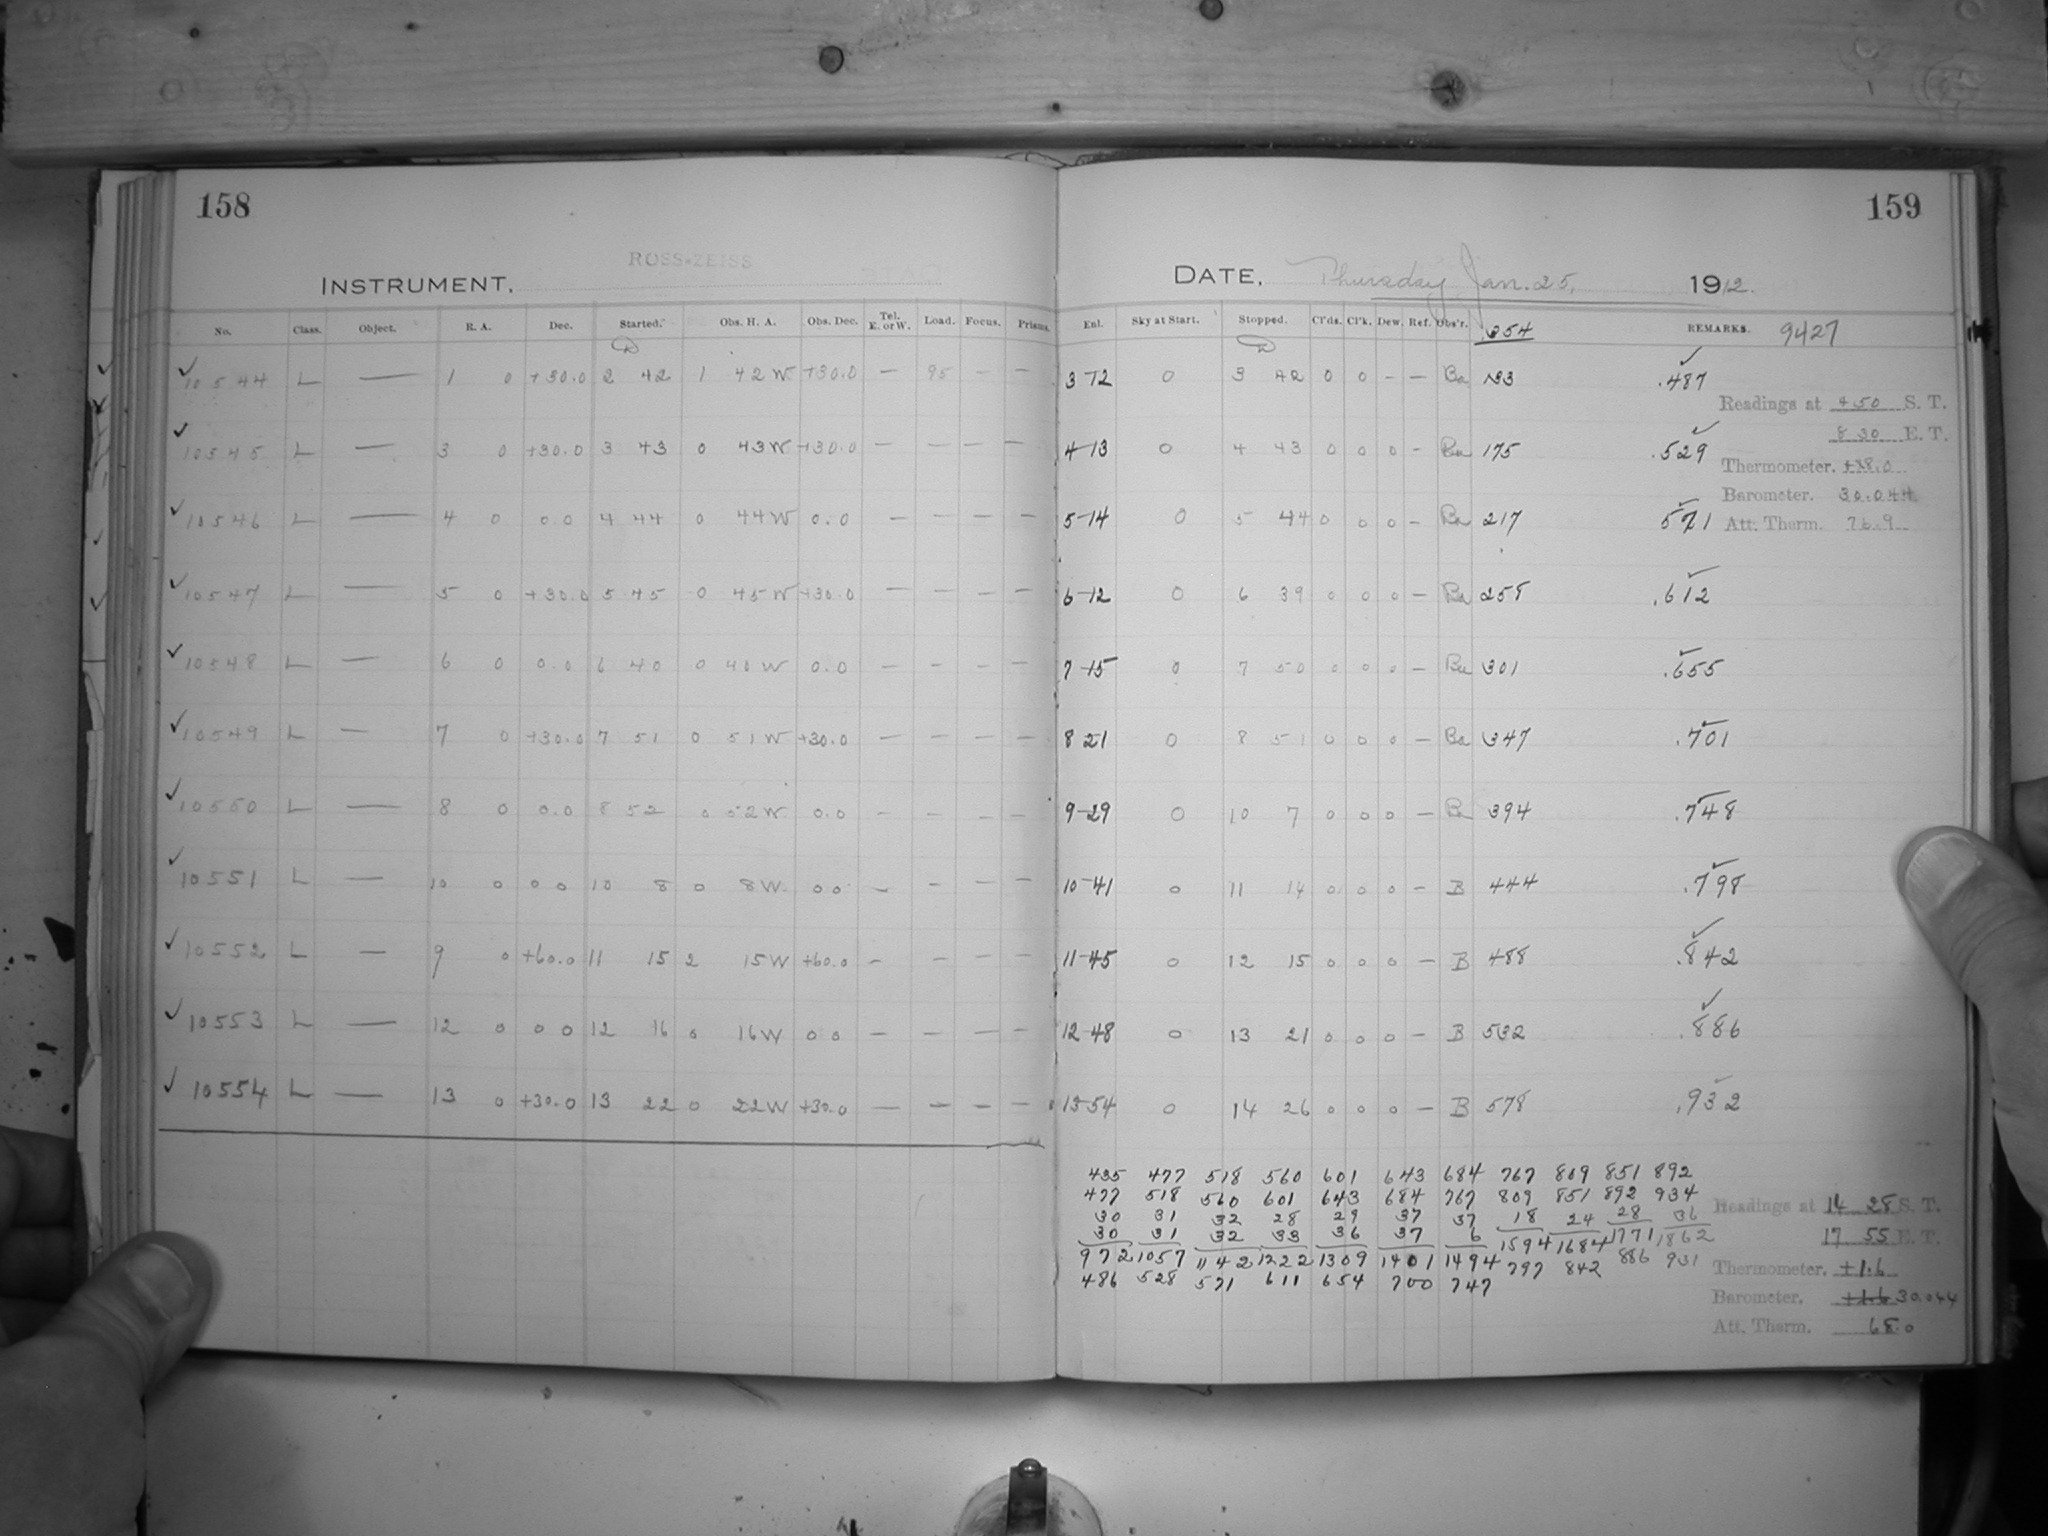 158
159
ROSS-ZEISS
INSTRUMENT,
DATE, Thursday Jan. 25, 1912.
No. Class. Object. R. A. Dec. Started. Obs. H. A. Obs. Dec. Tel. E. or W. Load. Focus. Prisms. Enl. Sky at Start. Stopped. Cl'ds. Cl'k. Dew. Ref. Obs'r. .354 REMARKS. 9427
10544 L — 1 0 +30.0 2 42 1 42W +30.0 — 95 — — 3-12 0 3 42 0 0 - — Ba 133 .487
Readings at 4 50 S. T.
8 30 E. T.
10545 L — 3 0 +30.0 3 43 0 43W +30.0 — — — — 4-13 0 4 43 0 0 0 - Ba 175 .529
Thermometer. +18.0
Barometer. 30.044
10546 L — 4 0 0.0 4 44 0 44W 0.0 — — — — 5-14 0 5 44 0 0 0 - Ba 217 571
Att. Therm. 76.9
10547 L — 5 0 +30.0 5 45 0 45W +30.0 — — — — 6-12 0 6 39 0 0 0 — Ba 258 .612
10548 L — 6 0 0.0 6 40 0 40W 0.0 — — — — 7-15 0 7 50 0 0 0 — Ba 301 .655
10549 L — 7 0 +30.0 7 51 0 51W +30.0 — — — — 8 21 0 8 51 0 0 0 — Ba 347 .701
10550 L — 8 0 0.0 8 52 0 52W 0.0 — — — — 9-29 0 10 7 0 0 0 — Ba 394 .748
10551 L — 10 0 0 0 10 8 0 8W 0 0 — — — — 10-41 0 11 14 0 0 0 — B 444 .798
10552 L — 9 0 +60.0 11 15 2 15W +60.0 — — — — 11-45 0 12 15 0 0 0 — B 488 .842
10553 L — 12 0 0 0 12 16 0 16W 0 0 — — — — 12-48 0 13 21 0 0 0 — B 532 .886
10554 L — 13 0 +30.0 13 22 0 22W +30.0 — — — — 13-54 0 14 26 0 0 0 — B 578 .932
435 477 518 560 601 643 684 767 809 851 892
477 518 560 601 643 684 767 809 851 892 934
30 31 32 28 29 37 37 18 24 28 36
30 31 32 33 36 37 6 1594 1684 1771 1862
972 1057 1142 1222 1309 1401 1494 797 842 886 931
486 528 571 611 654 700 747
Readings at 14 28 S. T.
17 55 E. T.
Thermometer. +1.6
Barometer. +1.6 30.044
Att. Therm. 68.0